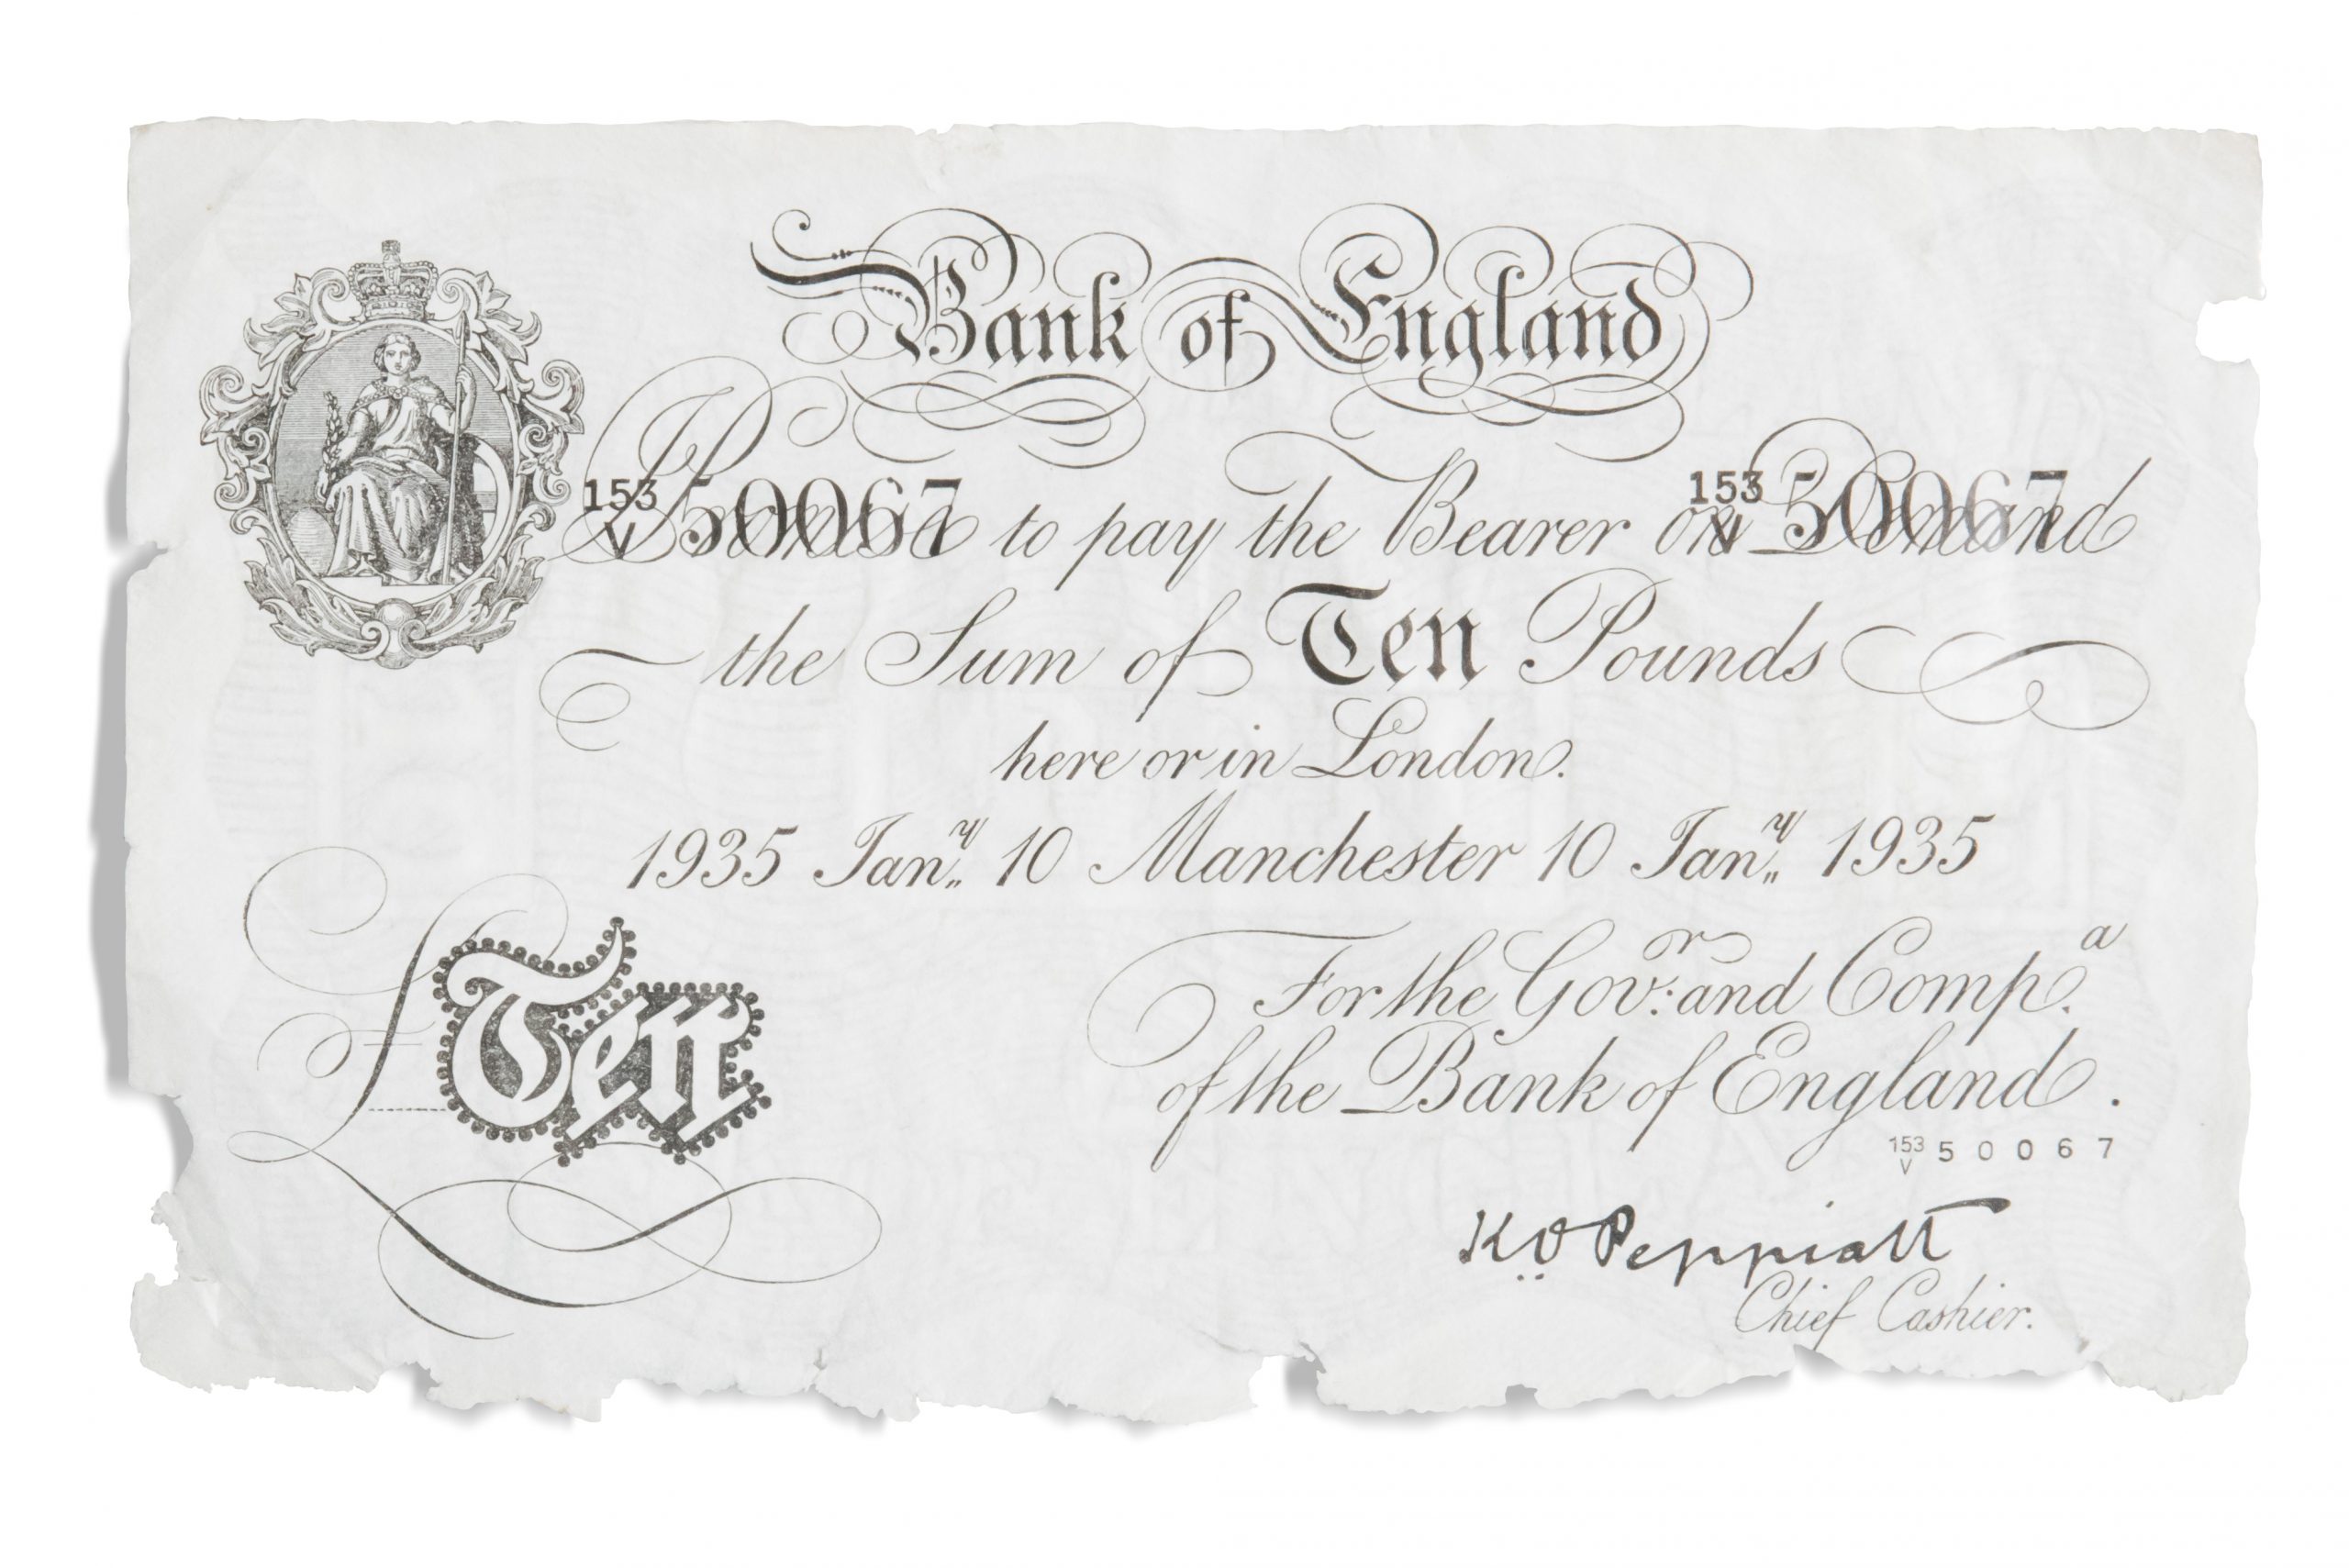 Bank of England
153 V 50067 I Promise to pay the Bearer on Demand 153 V 50067
the Sum of Ten Pounds
here or in London.
1935 Janʸ 10 Manchester 10 Janʸ 1935
£Ten
For the Govʳ: and Compᵃ.
of the Bank of England.
153 V 50067
K.O. Peppiatt
Chief Cashier.